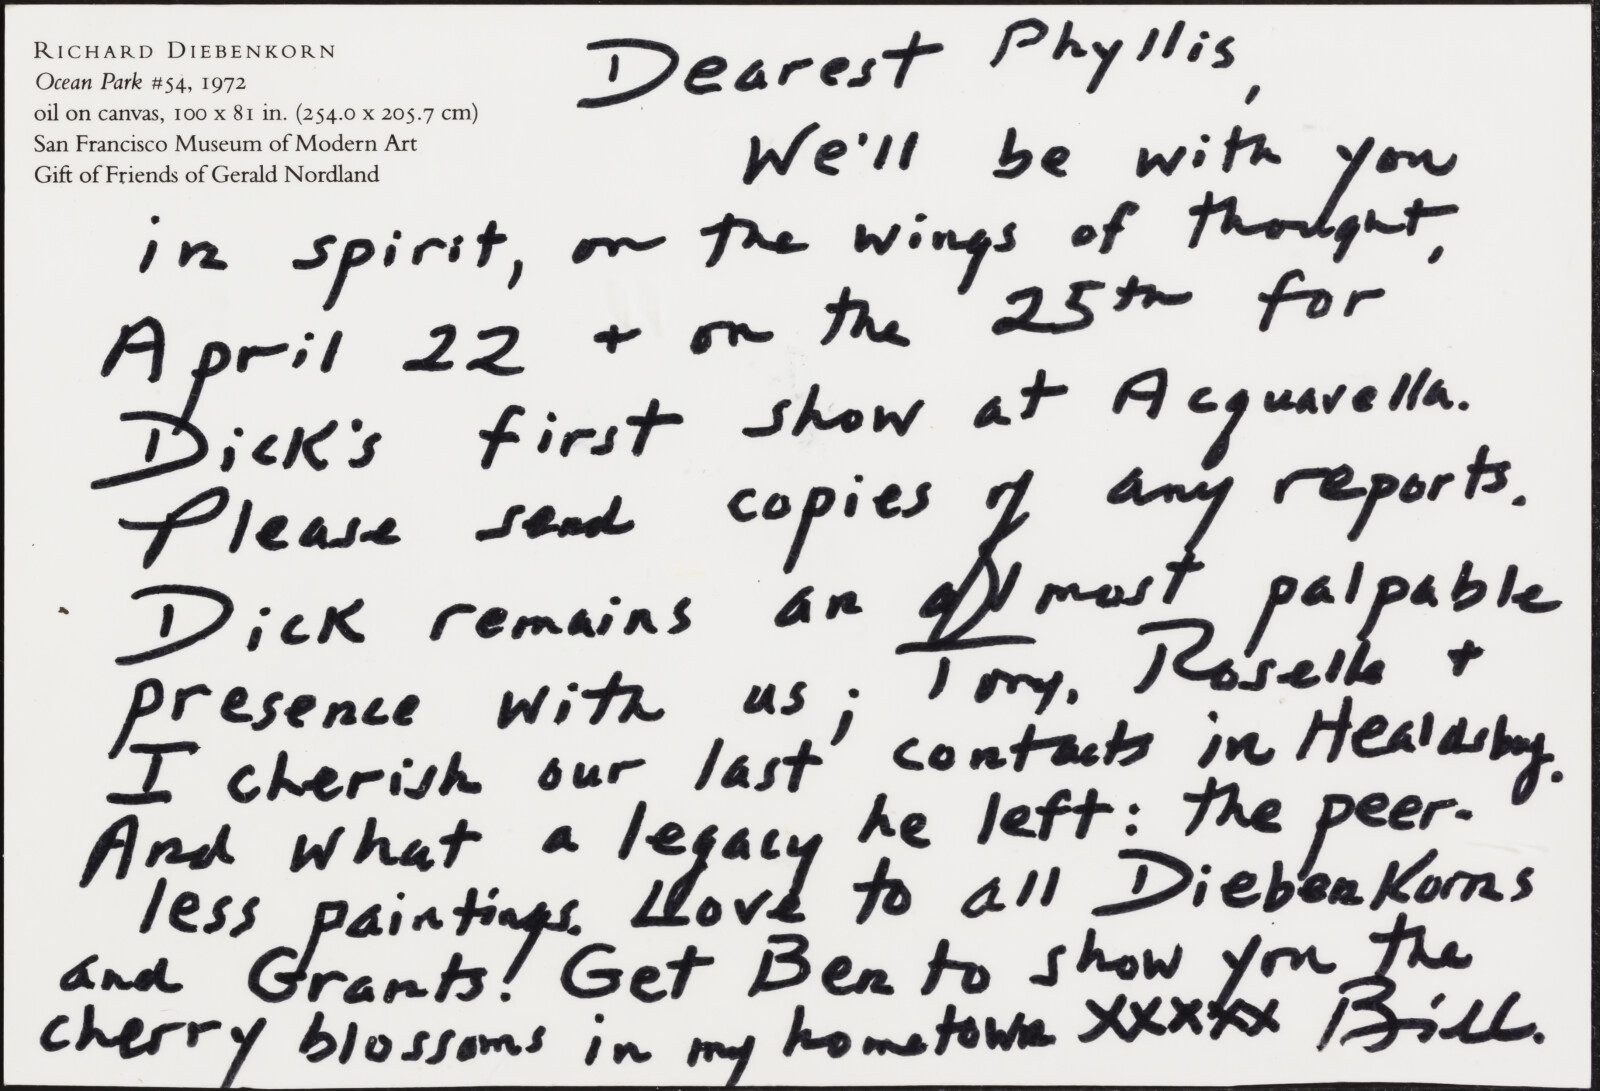 RICHARD DIEBENKORN
Ocean Park #54, 1972
oil on canvas, 100 x 81 in. (254.0 x 205.7 cm)
San Francisco Museum of Modern Art
Gift of Friends of Gerald Nordland
Dearest Phyllis,
We'll be with you
in spirit, on the wings of thought,
April 22 + on the 25th for
Dick's first show at Acquavella.
Please send copies of any reports.
Dick remains an almost palpable
presence with us; Tony, Roselle +
I cherish our last contacts in Healdsburg.
And what a legacy he left: the peer-
less paintings. Love to all Diebenkorns
and Grants! Get Ben to show you the
cherry blossoms in my hometown xxxxx Bill.